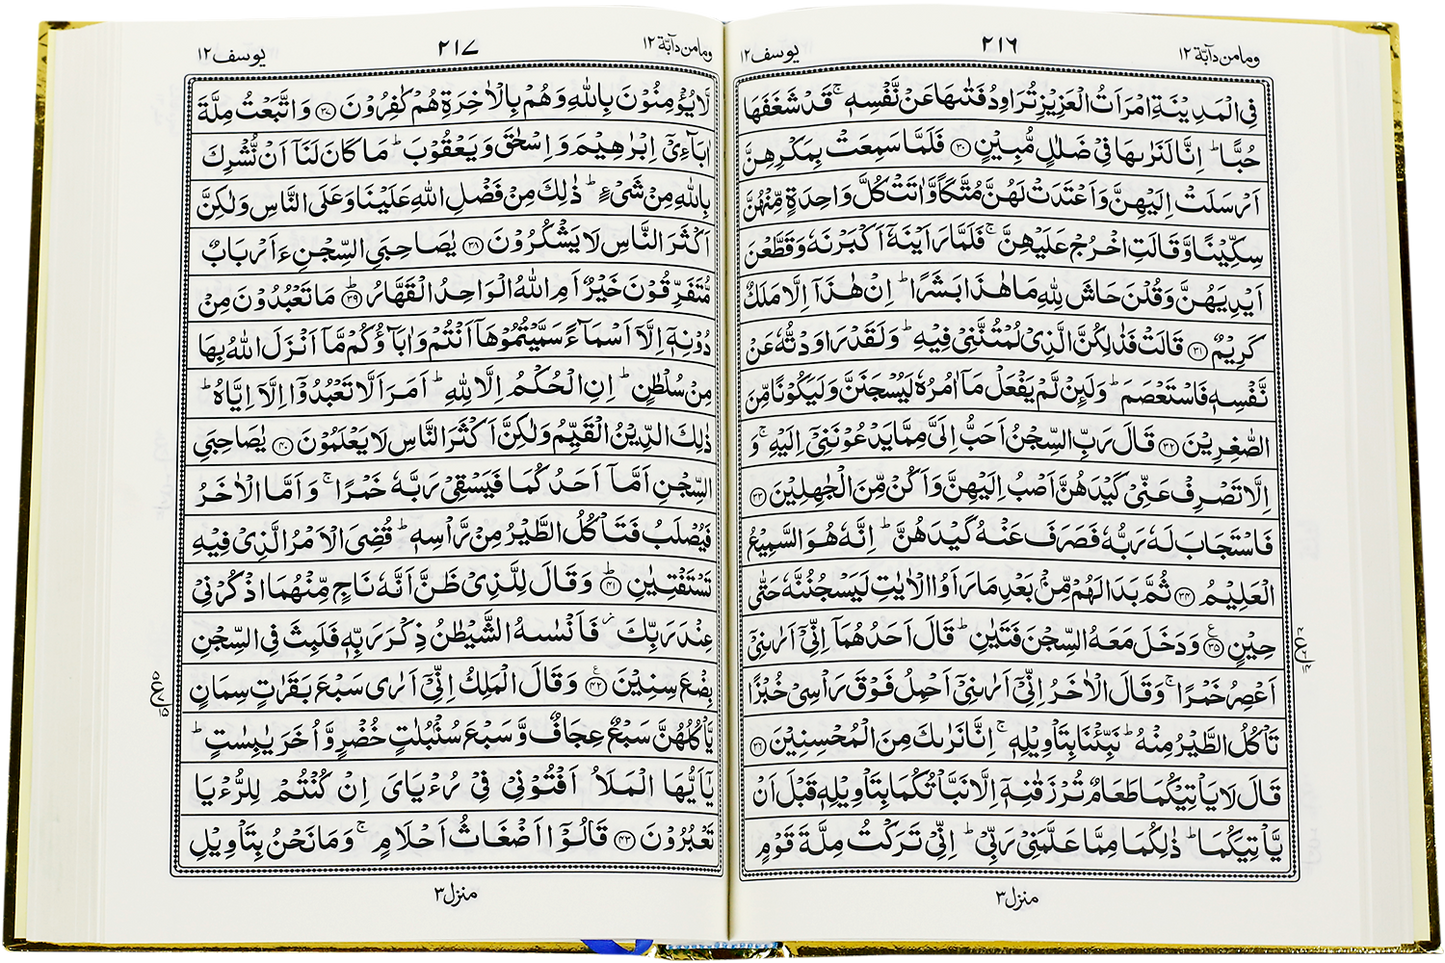 وما من دآبة ١٢
٢١٦
يوسف ١٢
فِى الۡمَدِيۡنَةِ امۡرَاَتُ الۡعَزِيۡزِ تُرَاوِدُ فَتٰٮهَا عَنۡ نَّفۡسِهٖ‌ۚ قَدۡ شَغَفَهَا
حُبًّا‌ ؕ اِنَّا لَنَرٰٮهَا فِىۡ ضَلٰلٍ مُّبِيۡنٍ ﴿۳۰﴾ فَلَمَّا سَمِعَتۡ بِمَكۡرِهِنَّ
اَرۡسَلَتۡ اِلَيۡهِنَّ وَاَعۡتَدَتۡ لَهُنَّ مُتَّكَاً وَّاٰتَتۡ كُلَّ وَاحِدَةٍ مِّنۡهُنَّ
سِكِّيۡنًا وَّقَالَتِ اخۡرُجۡ عَلَيۡهِنَّ‌ ۚ فَلَمَّا رَاَيۡنَهٗۤ اَكۡبَرۡنَهٗ وَقَطَّعۡنَ
اَيۡدِيَهُنَّ وَقُلۡنَ حَاشَ لِلّٰهِ مَا هٰذَا بَشَرًا ؕ اِنۡ هٰذَاۤ اِلَّا مَلَكٌ
كَرِيۡمٌ ﴿۳۱﴾ قَالَتۡ فَذٰلِكُنَّ الَّذِىۡ لُمۡتُنَّنِىۡ فِيۡهِ‌ؕ وَلَـقَدۡ رَاوَدْتُّهٗ عَنۡ
نَّـفۡسِهٖ فَاسۡتَعۡصَمَ‌ؕ وَلَئِنۡ لَّمۡ يَفۡعَلۡ مَاۤ اٰمُرُهٗ لَـيُسۡجَنَنَّ وَلَيَكُوۡنًا مِّنَ
الصّٰغِرِيۡنَ ﴿۳۲﴾ قَالَ رَبِّ السِّجۡنُ اَحَبُّ اِلَىَّ مِمَّا يَدۡعُوۡنَنِىۡۤ اِلَيۡهِ‌ۚ وَ
اِلَّا تَصۡرِفۡ عَنِّىۡ كَيۡدَهُنَّ اَصۡبُ اِلَيۡهِنَّ وَاَكُنۡ مِّنَ الۡجٰهِلِيۡنَ ﴿۳۳﴾
فَاسۡتَجَابَ لَهٗ رَبُّهٗ فَصَرَفَ عَنۡهُ كَيۡدَهُنَّ‌ؕ اِنَّهٗ هُوَ السَّمِيۡعُ
الۡعَلِيۡمُ ﴿۳۴﴾ ثُمَّ بَدَا لَهُمۡ مِّنۡۢ بَعۡدِ مَا رَاَوُا الۡاٰيٰتِ لَيَسۡجُنُـنَّهٗ حَتّٰى
حِيۡنٍ ﴿۳۵﴾ وَدَخَلَ مَعَهُ السِّجۡنَ فَتَيٰنِ‌ؕ قَالَ اَحَدُهُمَاۤ اِنِّىۡۤ اَرٰٮنِىۡۤ
اَعۡصِرُ خَمۡرًا‌ ۚ وَقَالَ الۡاٰخَرُ اِنِّىۡۤ اَرٰٮنِىۡۤ اَحۡمِلُ فَوۡقَ رَاۡسِىۡ خُبۡزًا
تَاۡكُلُ الطَّيۡرُ مِنۡهُ‌ ؕ نَبِّئۡنَا بِتَاۡوِيۡلِهٖ‌ ۚ اِنَّا نَرٰٮكَ مِنَ الۡمُحۡسِنِيۡنَ ﴿۳۶﴾
قَالَ لَا يَاۡتِيۡكُمَا طَعَامٌ تُرۡزَقٰنِهٖۤ اِلَّا نَـبَّاۡتُكُمَا بِتَاۡوِيۡلِهٖ قَبۡلَ اَنۡ
يَّاۡتِيَكُمَا‌ ؕ ذٰ لِكُمَا مِمَّا عَلَّمَنِىۡ رَبِّىۡ ؕ اِنِّىۡ تَرَكۡتُ مِلَّةَ قَوۡمٍ
منزل ٣
وما من دآبة ١٢
٢١٧
يوسف ١٢
لَّا يُؤۡمِنُوۡنَ بِاللّٰهِ وَهُمۡ بِالۡاٰخِرَةِ هُمۡ كٰفِرُوۡنَ ﴿۳۷﴾ وَاتَّبَعۡتُ مِلَّةَ
اٰبَآءِىۡۤ اِبۡرٰهِيۡمَ وَاِسۡحٰقَ وَيَعۡقُوۡبَ‌ؕ مَا كَانَ لَنَاۤ اَنۡ نُّشۡرِكَ
بِاللّٰهِ مِنۡ شَىۡءٍ‌ؕ ذٰلِكَ مِنۡ فَضۡلِ اللّٰهِ عَلَيۡنَا وَعَلَى النَّاسِ وَلٰـكِنَّ
اَكۡثَرَ النَّاسِ لَا يَشۡكُرُوۡنَ ﴿۳۸﴾ يٰصَاحِبَىِ السِّجۡنِ ءَاَرۡبَابٌ
مُّتَفَرِّقُوۡنَ خَيۡرٌ اَمِ اللّٰهُ الۡوَاحِدُ الۡقَهَّارُؕ ﴿۳۹﴾ مَا تَعۡبُدُوۡنَ مِنۡ
دُوۡنِهٖۤ اِلَّاۤ اَسۡمَآءً سَمَّيۡتُمُوۡهَاۤ اَنۡـتُمۡ وَ اٰبَآؤُكُمۡ مَّاۤ اَنۡزَلَ اللّٰهُ بِهَا
مِنۡ سُلۡطٰنٍ‌ؕ اِنِ الۡحُكۡمُ اِلَّا لِلّٰهِ‌ؕ اَمَرَ اَلَّا تَعۡبُدُوۡۤا اِلَّاۤ اِيَّاهُ‌ؕ
ذٰلِكَ الدِّيۡنُ الۡقَيِّمُ وَلٰـكِنَّ اَكۡثَرَ النَّاسِ لَا يَعۡلَمُوۡنَ ﴿۴۰﴾ يٰصَاحِبَىِ
السِّجۡنِ اَمَّاۤ اَحَدُكُمَا فَيَسۡقِىۡ رَبَّهٗ خَمۡرًا‌ۚ وَاَمَّا الۡاٰخَرُ
فَيُصۡلَبُ فَتَاۡكُلُ الطَّيۡرُ مِنۡ رَّاۡسِهٖ‌ؕ قُضِىَ الۡاَمۡرُ الَّذِىۡ فِيۡهِ
تَسۡتَفۡتِيٰنِؕ ﴿۴۱﴾ وَقَالَ لِلَّذِىۡ ظَنَّ اَنَّهٗ نَاجٍ مِّنۡهُمَا اذۡكُرۡنِىۡ
عِنۡدَ رَبِّكَ فَاَنۡسٰٮهُ الشَّيۡطٰنُ ذِكۡرَ رَبِّهٖ فَلَبِثَ فِى السِّجۡنِ
بِضۡعَ سِنِيۡنَ ﴿۴۲﴾ وَقَالَ الۡمَلِكُ اِنِّىۡۤ اَرٰى سَبۡعَ بَقَرٰتٍ سِمَانٍ
يَّاۡكُلُهُنَّ سَبۡعٌ عِجَافٌ وَّسَبۡعَ سُنۡۢبُلٰتٍ خُضۡرٍ وَّاُخَرَ يٰبِسٰتٍ‌ؕ
يٰۤاَيُّهَا الۡمَلَاُ اَفۡتُوۡنِىۡ فِىۡ رُءۡيَاىَ اِنۡ كُنۡتُمۡ لِلرُّءۡيَا
تَعۡبُرُوۡنَ ﴿۴۳﴾ قَالُوۡۤا اَضۡغَاثُ اَحۡلَامٍ‌ۚ وَمَا نَحۡنُ بِتَاۡوِيۡلِ
منزل ٣